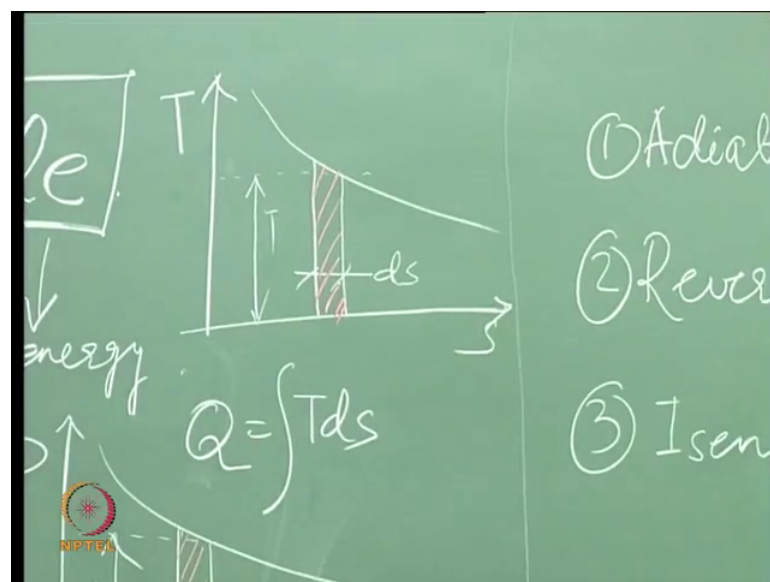 le
energy
T
T
ds
S
Q = ∫Tds
① Adiab
② Rever
③ Isen
NPTEL